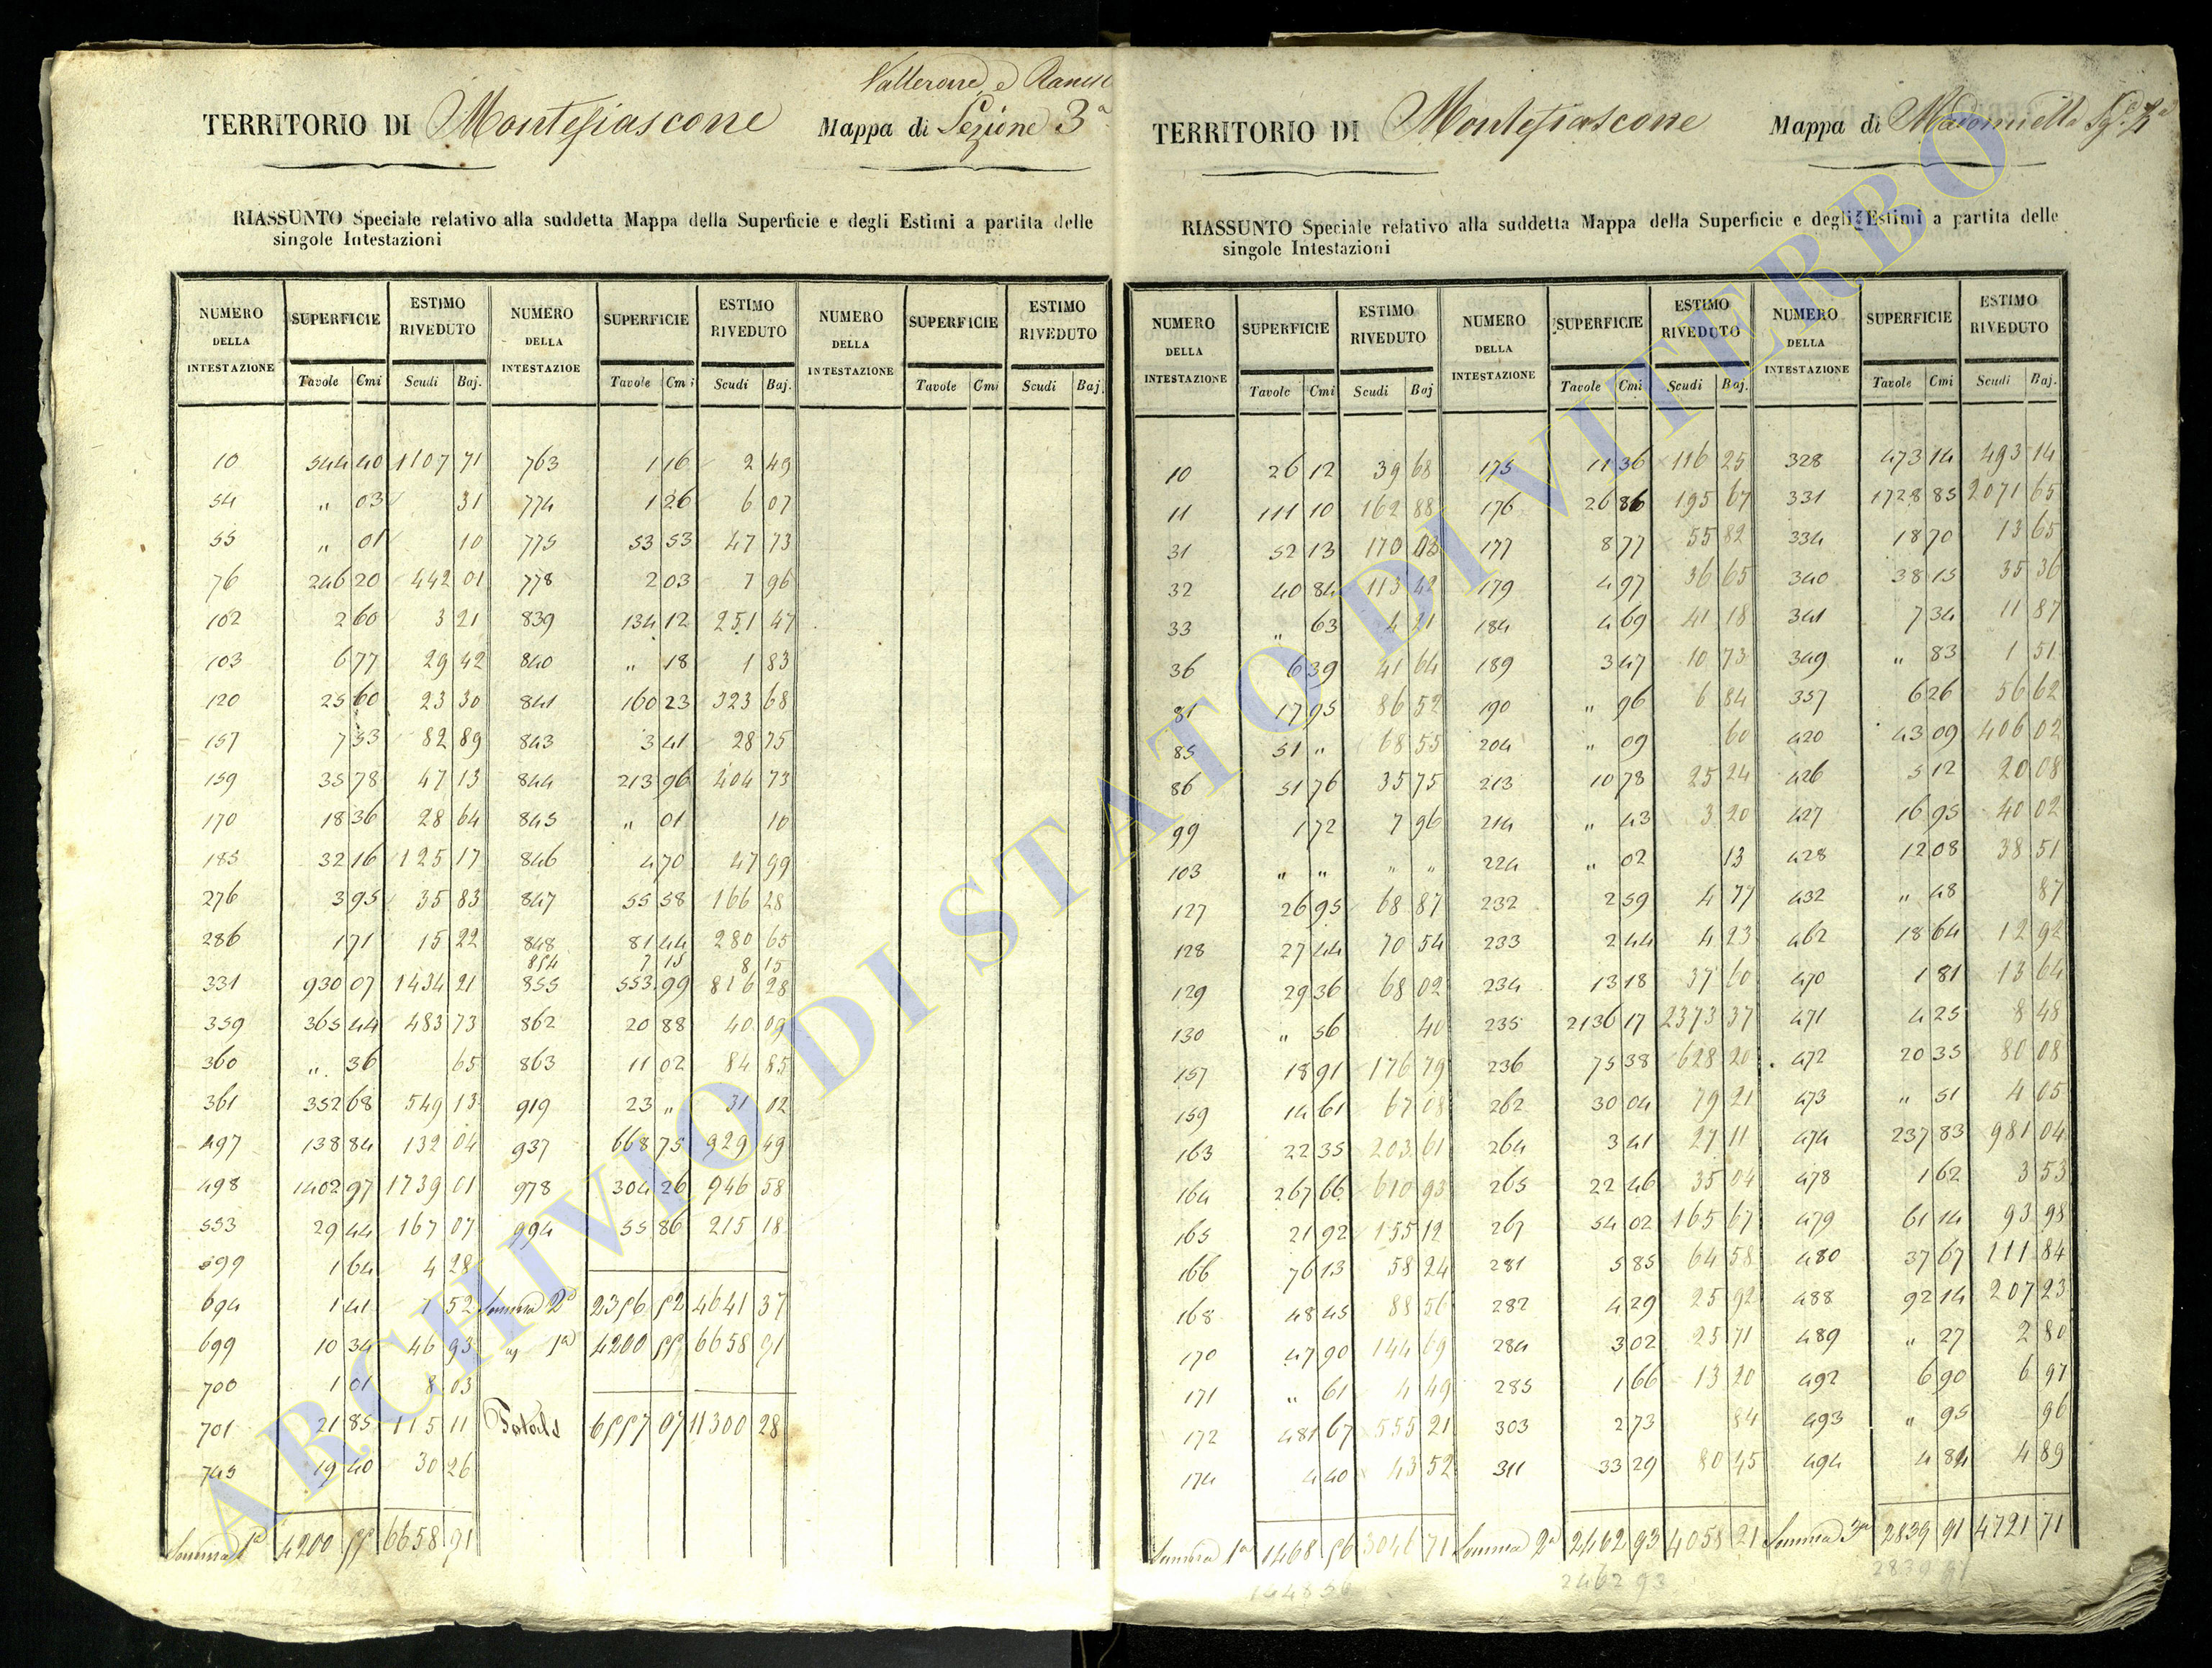 Valterone, e
TERRITORIO DI Montefiascone Mappa di Sezione 3ª
RIASSUNTO Speciale relativo alla suddetta Mappa della Superficie e degli Estimi a partita delle
singole Intestazioni
NUMERO DELLA INTESTAZIONE SUPERFICIE ESTIMO RIVEDUTO NUMERO DELLA INTESTAZIOE SUPERFICIE ESTIMO RIVEDUTO NUMERO DELLA INTESTAZIONE SUPERFICIE ESTIMO RIVEDUTO
Tavole Cmi Scudi Baj. Tavole Cmi Scudi Baj. Tavole Cmi Scudi Baj.
10 544 40 1107 71 763 1 16 2 49
54 " 03 31 774 1 26 6 07
55 " 01 10 775 53 53 47 73
76 246 20 442 01 778 2 03 7 96
102 2 60 3 21 839 134 12 251 47
103 6 77 29 42 840 " 18 1 83
120 25 60 23 30 841 160 23 323 68
157 7 53 82 89 843 3 41 28 75
159 35 78 47 13 844 213 96 404 73
170 18 36 28 64 845 " 01 10
185 32 16 125 17 846 4 70 47 99
276 3 95 35 83 847 55 58 166 28
286 1 71 15 22 848 81 44 280 65
854 7 15 8 15
331 930 07 1434 21 855 553 99 816 28
359 365 44 483 73 862 20 88 40 09
360 " 36 65 863 11 02 84 85
361 352 68 549 13 919 23 " 31 02
497 138 84 132 04 937 668 75 929 49
498 1402 97 1739 01 978 304 26 946 58
553 29 44 167 07 994 55 86 215 18
599 1 64 4 28
694 1 41 7 52 Somma 2ª 2356 52 4641 37
699 10 34 46 93 " 1ª 4200 55 6658 91
700 1 01 8 03
701 21 85 115 11 Totale 6557 07 11300 28
745 19 40 30 26
Somma 1ª 4200 55 6658 91
TERRITORIO DI Montefiascone Mappa di Madonnella
RIASSUNTO Speciale relativo alla suddetta Mappa della Superficie e degli Estimi a partita delle
singole Intestazioni
NUMERO DELLA INTESTAZIONE SUPERFICIE ESTIMO RIVEDUTO NUMERO DELLA INTESTAZIONE SUPERFICIE ESTIMO RIVEDUTO NUMERO DELLA INTESTAZIONE SUPERFICIE ESTIMO RIVEDUTO
Tavole Cmi Scudi Baj Tavole Cmi Scudi Baj. Tavole Cmi Scudi Baj.
10 26 12 39 68 175 11 36 116 25 328 473 14 493 14
11 111 10 162 88 176 26 86 195 67 331 1728 85 2071 65
31 52 13 170 03 177 8 77 55 82 334 18 70 13 65
32 40 84 113 42 179 4 97 36 65 340 38 15 35 36
33 " 63 4 21 184 4 69 41 18 341 7 34 11 87
36 6 39 41 64 189 3 47 10 73 349 " 83 1 51
81 17 95 86 52 190 " 96 6 84 357 6 26 56 62
85 51 " 68 55 204 " 09 60 420 43 09 406 02
86 51 76 35 75 213 10 78 25 24 426 5 12 20 08
99 1 72 7 96 214 " 43 3 20 427 16 95 40 02
103 " " " " 224 " 02 13 428 12 08 38 51
127 26 95 68 87 232 2 59 4 77 432 " 48 87
128 27 44 70 54 233 2 44 4 23 462 18 64 12 92
129 29 36 68 02 234 13 18 37 60 470 1 81 13 64
130 " 56 40 235 2136 17 2373 37 471 4 25 8 48
157 18 91 176 79 236 75 38 628 20 472 20 35 80 08
159 14 61 67 08 262 30 04 79 21 473 " 51 4 05
163 22 35 203 61 264 3 41 27 11 474 237 83 981 04
164 267 66 610 93 265 22 46 35 04 478 1 62 3 53
165 21 92 155 12 267 54 02 165 67 479 61 14 93 98
166 76 13 58 24 281 5 85 64 58 480 37 67 111 84
168 48 45 88 56 282 4 29 25 92 488 92 14 207 23
170 47 90 144 69 284 3 02 25 71 489 " 27 2 80
171 " 61 4 49 285 1 66 13 20 492 6 90 6 97
172 481 67 555 21 303 2 73 84 493 " 95 96
174 4 40 43 52 311 33 29 80 45 494 4 84 4 89
Somma 1ª 1468 56 3046 71 Somma 2ª 2462 93 4058 21 Somma 3ª 2839 91 4721 71
1448 56 2462 93 2839 91
ARCHIVIO DI STATO DI VITERBO